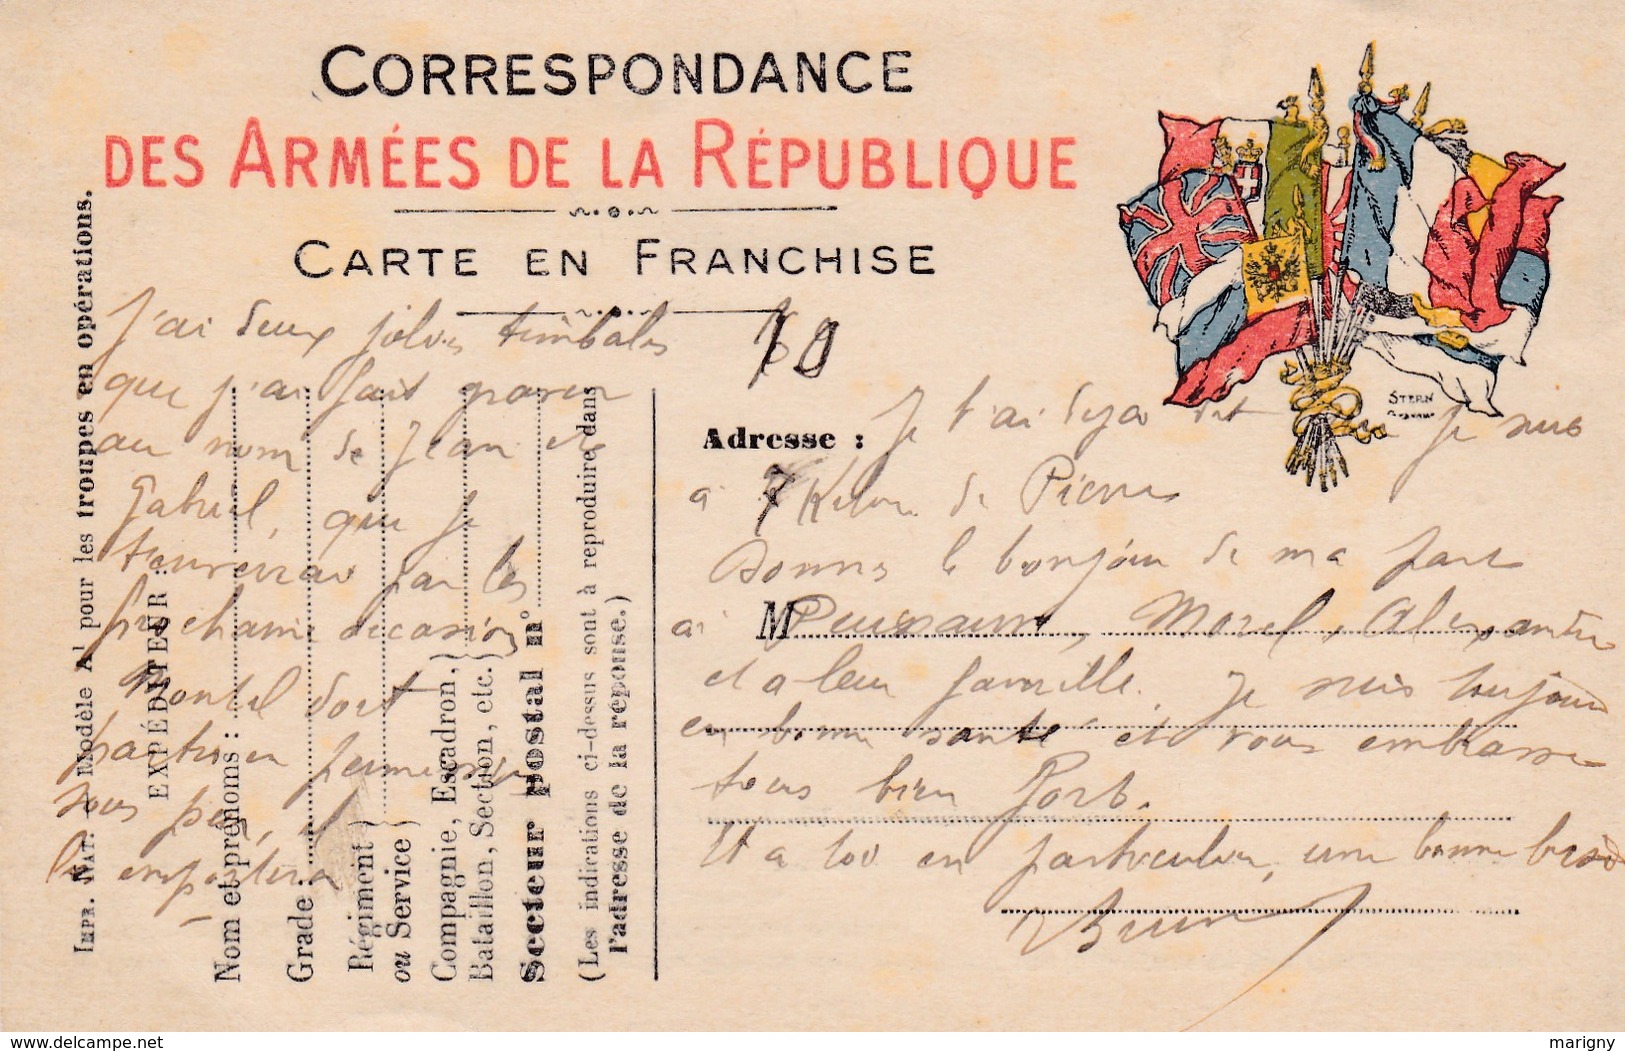 CORRESPONDANCE
DES ARMÉES DE LA RÉPUBLIQUE
CARTE EN FRANCHISE
STERN
IMP. NAT. Modèle A1 pour les troupes en opérations.
EXPÉDITEUR :
Nom et prénoms :
Grade :
Régiment
ou Service
Compagnie, Escadron,
Bataillon, Section, etc.
Secteur postal n°
(Les indications ci-dessus sont à reproduire dans
l'adresse de la réponse.)
J'ai deux jolies timbales
que j'ai fait graver
au nom de Jean et
Gabriel, que je
par les
prochaine occasion
Montel doit
partir en permission
sous peu, il
les emportera
Adresse :
Je t'ai deja dit que je suis
a 7 Kilom. de Pierre
Donnes le bonjour de ma part
a M Puissant, Morel, Alexandre
et a leur famille. Je suis toujours
en bonne santé et vous embrasse
tous bien fort.
Et a toi en particulier, une bonne
marigny
www.delcampe.net